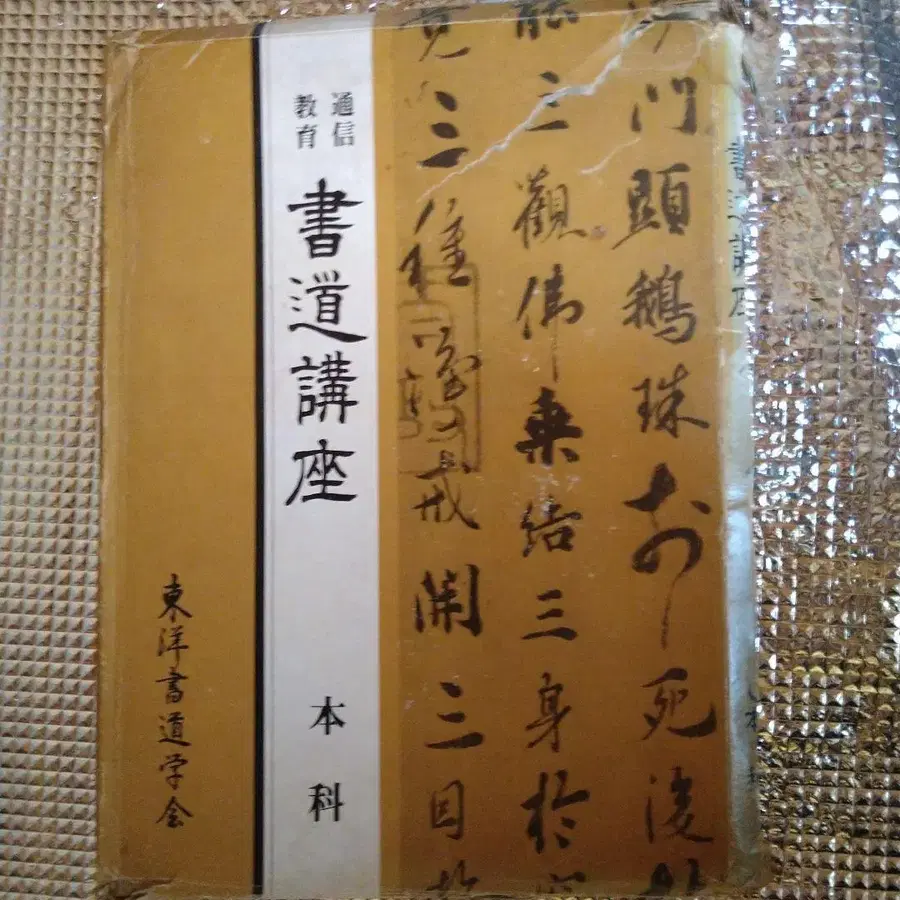 書道講座
門顕鵝珠
死後
三觀佛乗結三身於
三種
戒開三因
通信
教育
書道講座
本科
東洋書道学会